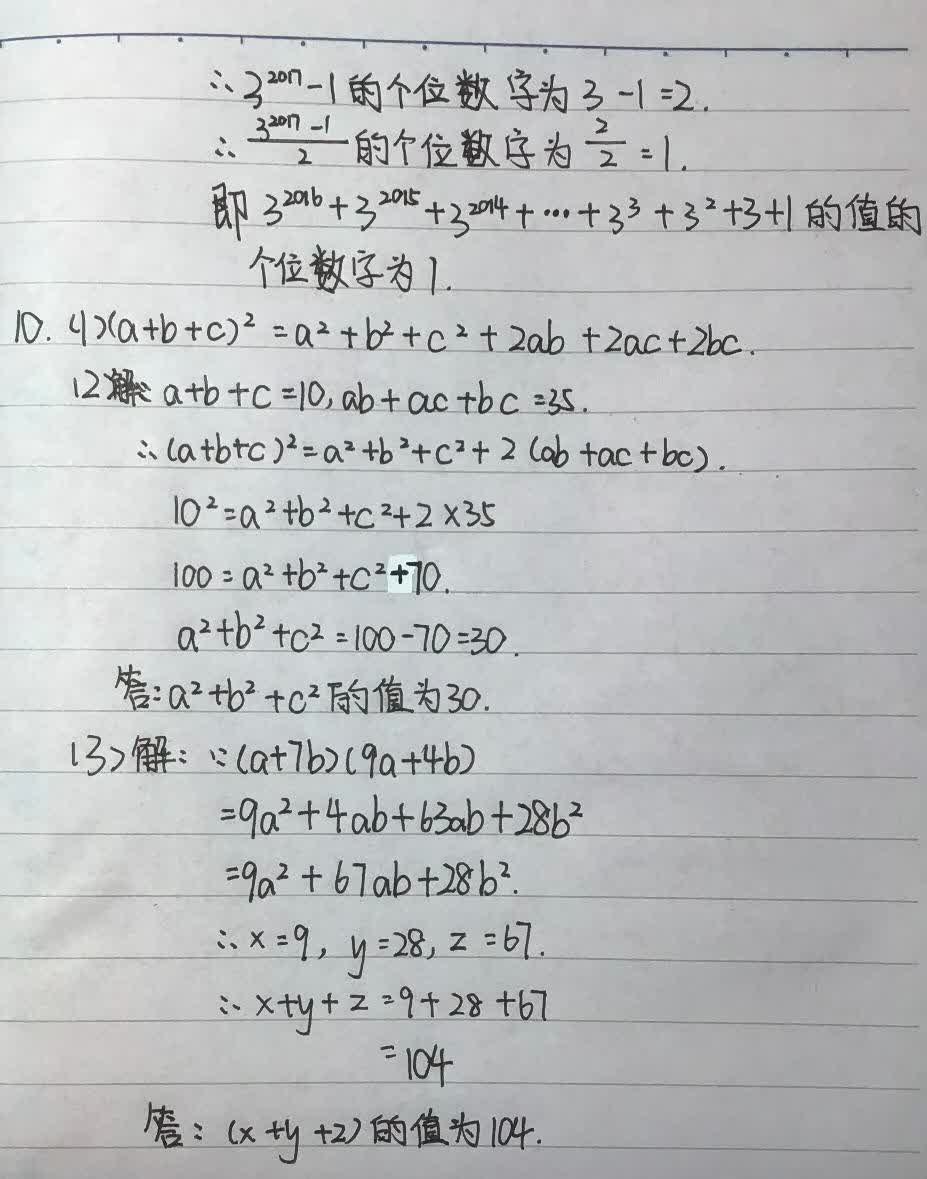 ∴3^2017-1的个位数字为3-1=2.
∴(3^2017-1)/2的个位数字为2/2=1.
即3^2016+3^2015+3^2014+…+3^3+3^2+3+1的值的
个位数字为1.
10.(1)(a+b+c)²=a²+b²+c²+2ab+2ac+2bc.
(2)解:a+b+c=10,ab+ac+bc=35.
∴(a+b+c)²=a²+b²+c²+2(ab+ac+bc).
10²=a²+b²+c²+2×35
100=a²+b²+c²+70.
a²+b²+c²=100-70=30.
答:a²+b²+c²的值为30.
(3)解:∵(a+7b)(9a+4b)
=9a²+4ab+63ab+28b²
=9a²+67ab+28b².
∴x=9,y=28,z=67.
∴x+y+z=9+28+67
=104
答:(x+y+z)的值为104.